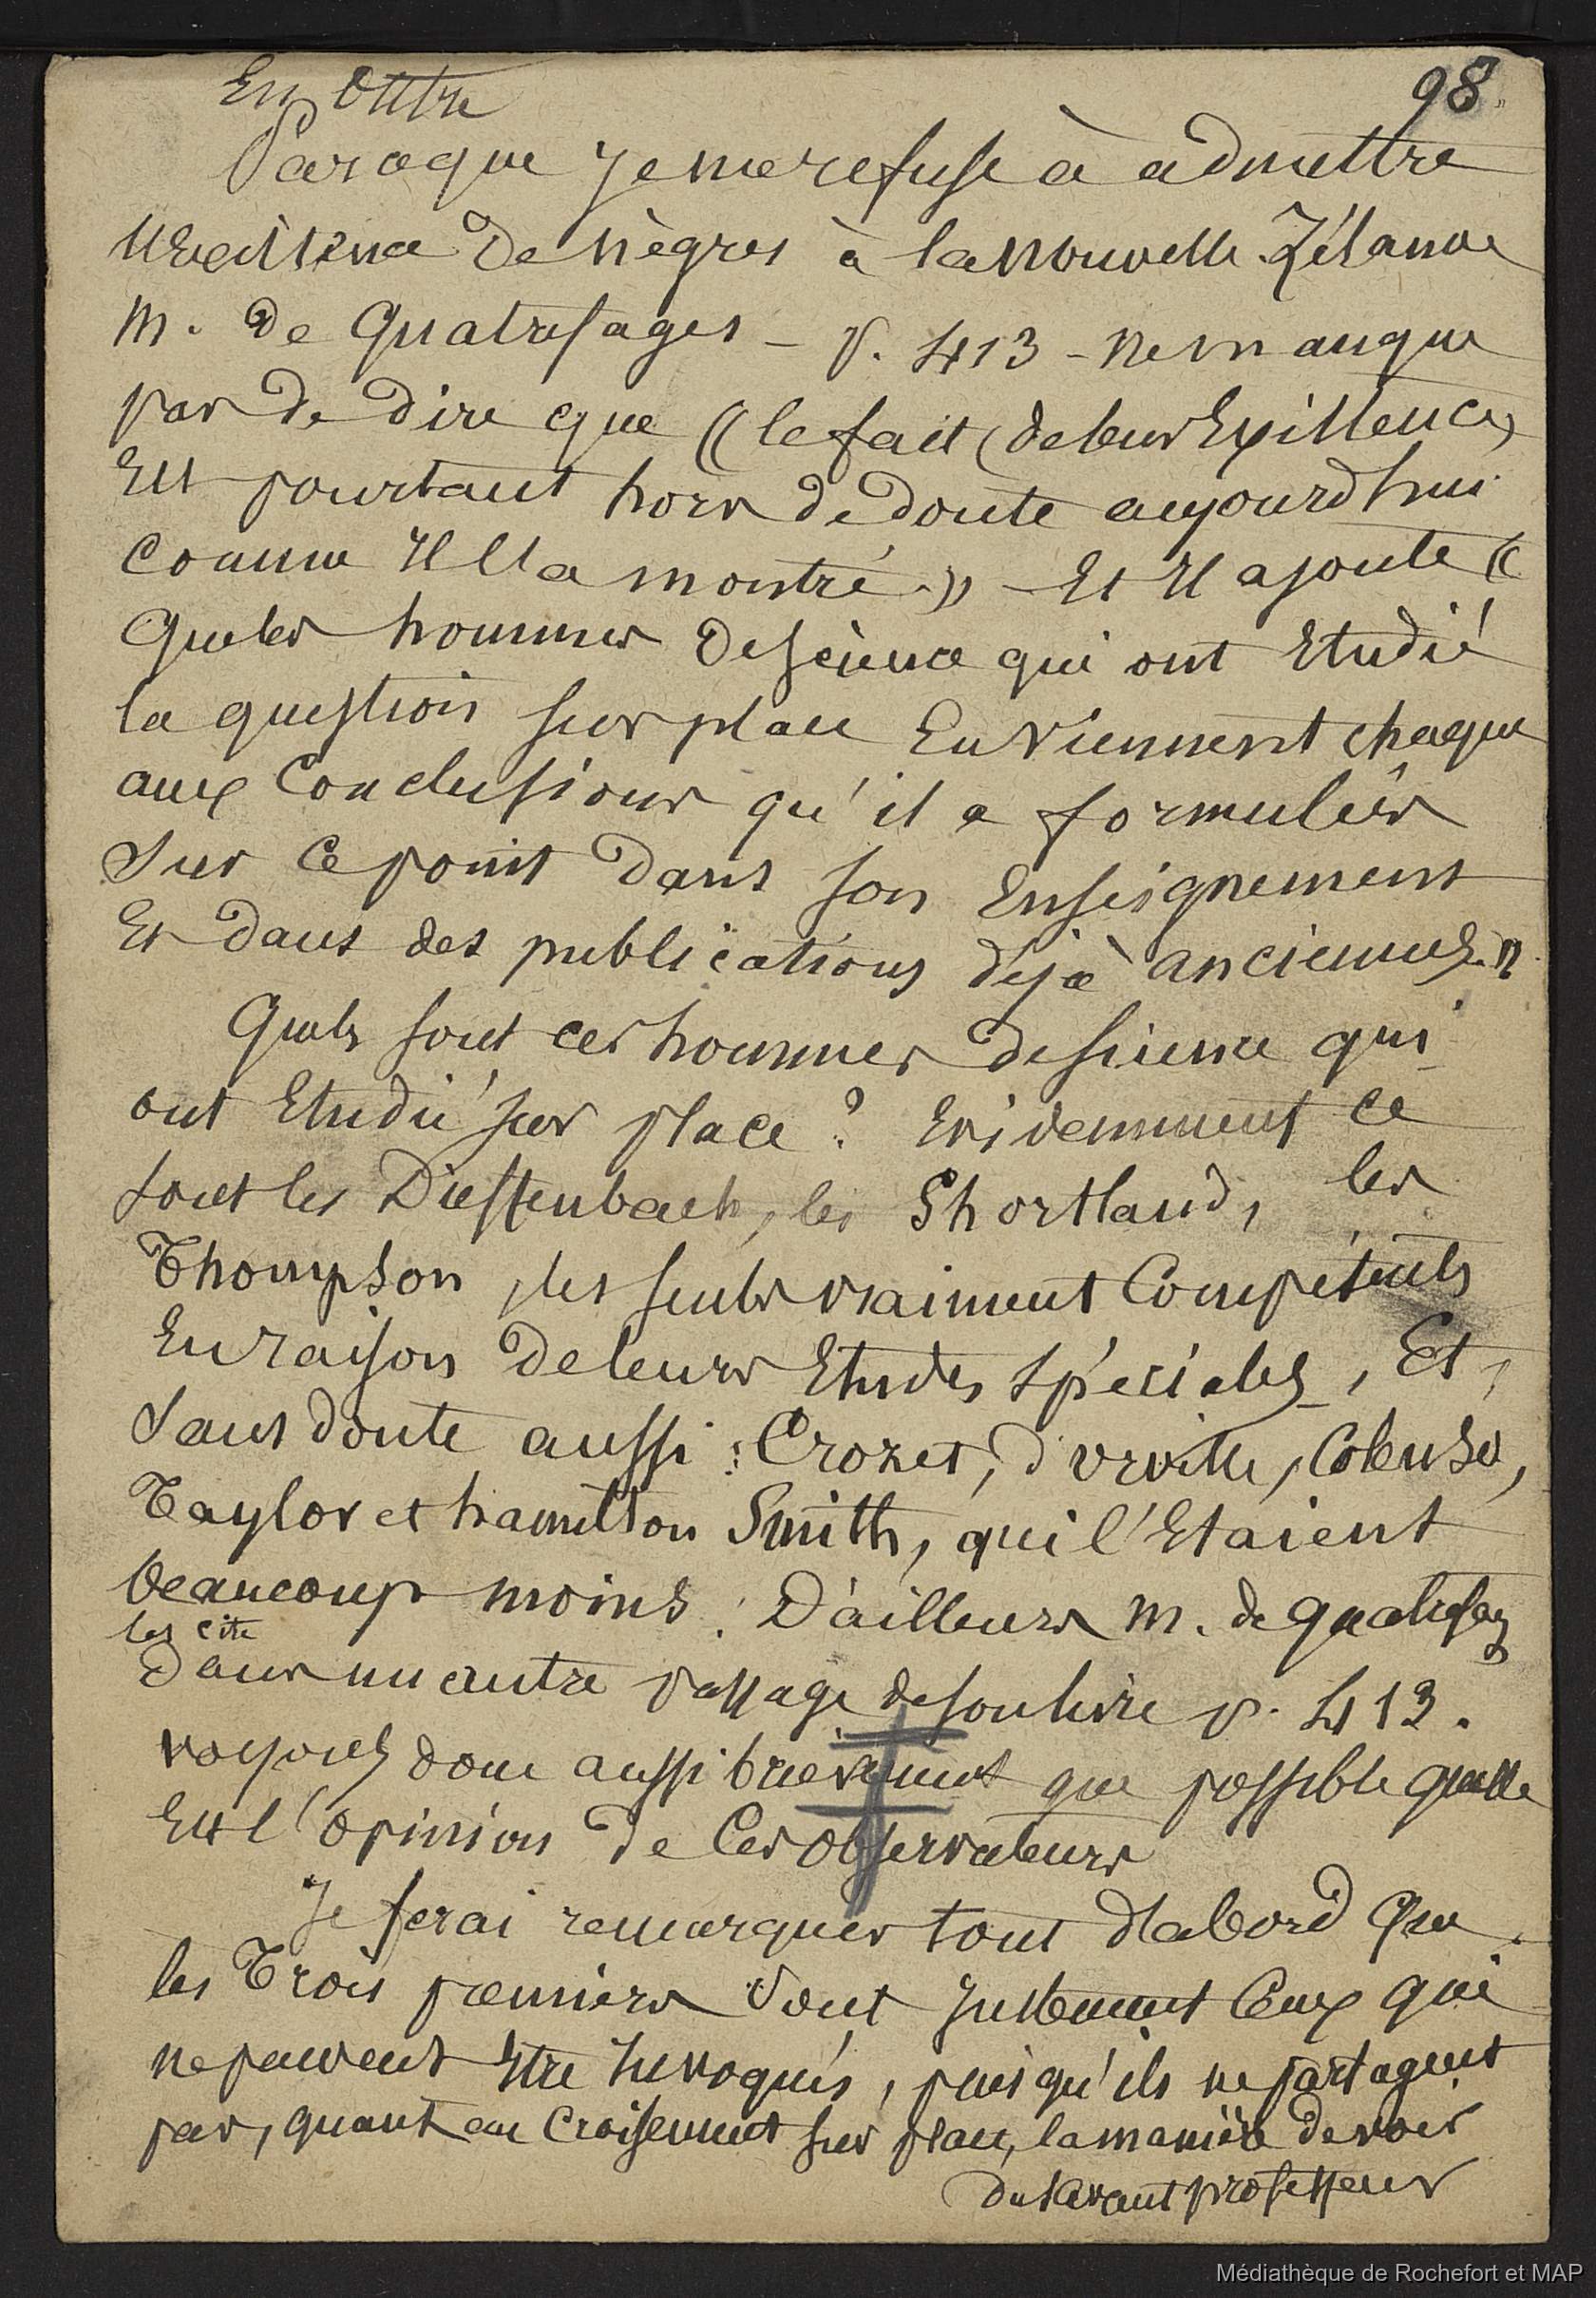 98
En Outre
Parceque je me refuse à admettre
l'Existence de nègres à la Nouvelle-Zélande
M. de Quatrefages - p. 413 - ne manque
pas de dire que « le fait (de leur Existence)
Est pourtant hors de doute aujourd'hui
comme Il l'a montré » - Et Il ajoute «
que les hommes de science qui ont Etudié
la question sur place En viennent chaque
aux Conclusions qu'il a formulées
Sur ce point dans son Enseignement
Et dans des publications déjà anciennes. »
Quels sont ces hommes de science qui
ont Etudié sur place ? Evidemment ce
sont les Dieffenbach, les Shortland, les
Thompson, les seuls vraiment Compétents
En raison de leurs Etudes spéciales, Et,
Sans doute aussi : Crozet, d'urville, Colenso,
Taylor et hamilton Smith, qui l'Etaient
beaucoup moins. D'ailleurs M. de quatrefages
les cite
dans un autre passage de son livre p. 413.
voyons donc aussi brièvement que possible quelle
Est l'opinion de Ces observateurs
Je ferai remarquer tout d'abord que
les Trois premiers sont justement Ceux qui
ne peuvent Etre Invoqués, puisqu'ils ne partagent
pas, quant au Croisement sur place, la manière de voir
du savant professeur
Médiathèque de Rochefort et MAP